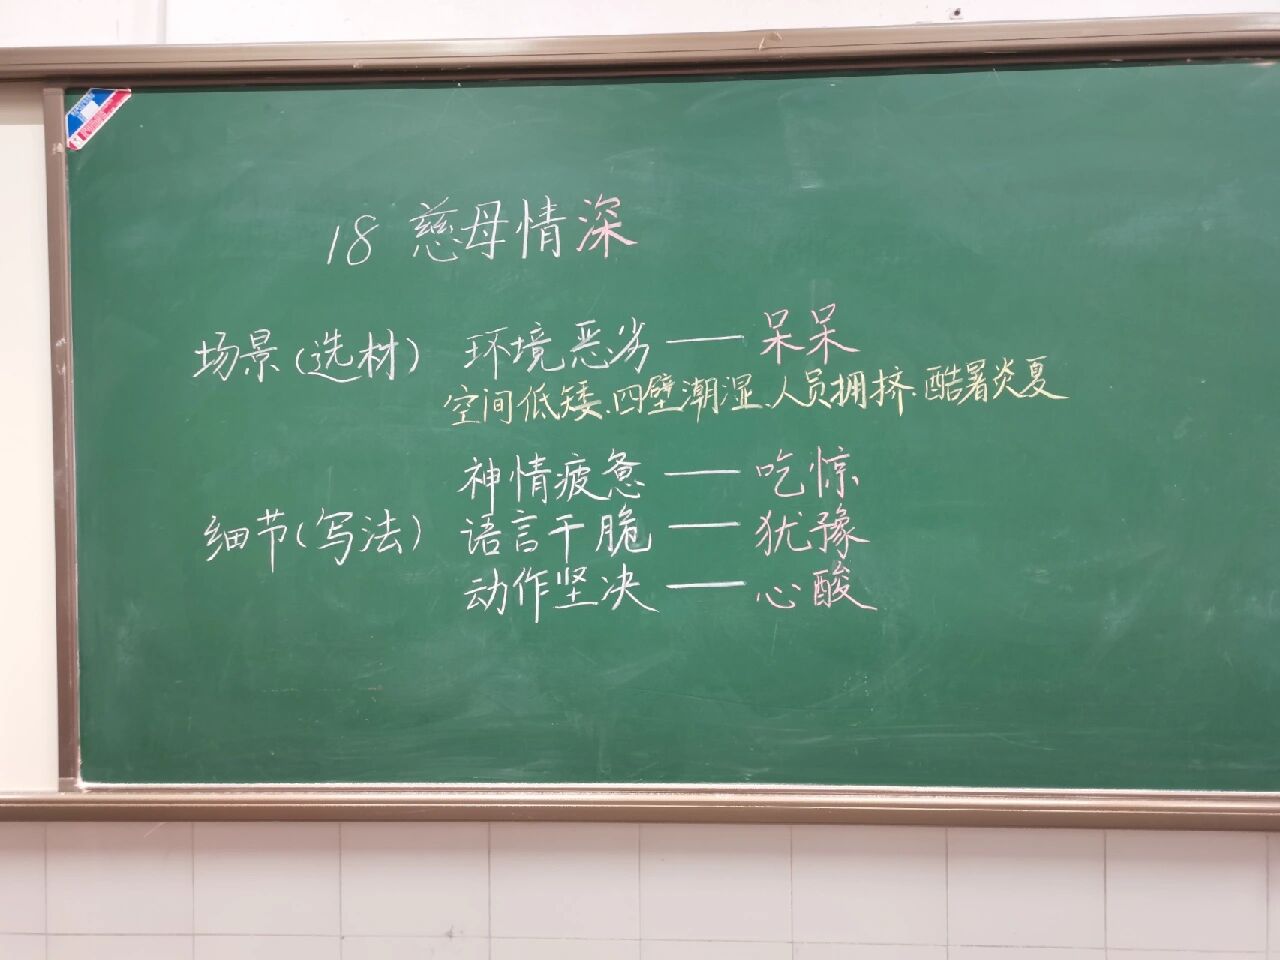 18 慈母情深
场景(选材) 环境恶劣——呆呆
空间低矮、四壁潮湿、人员拥挤、酷暑炎夏
神情疲惫——吃惊
细节(写法) 语言干脆——犹豫
动作坚决——心酸